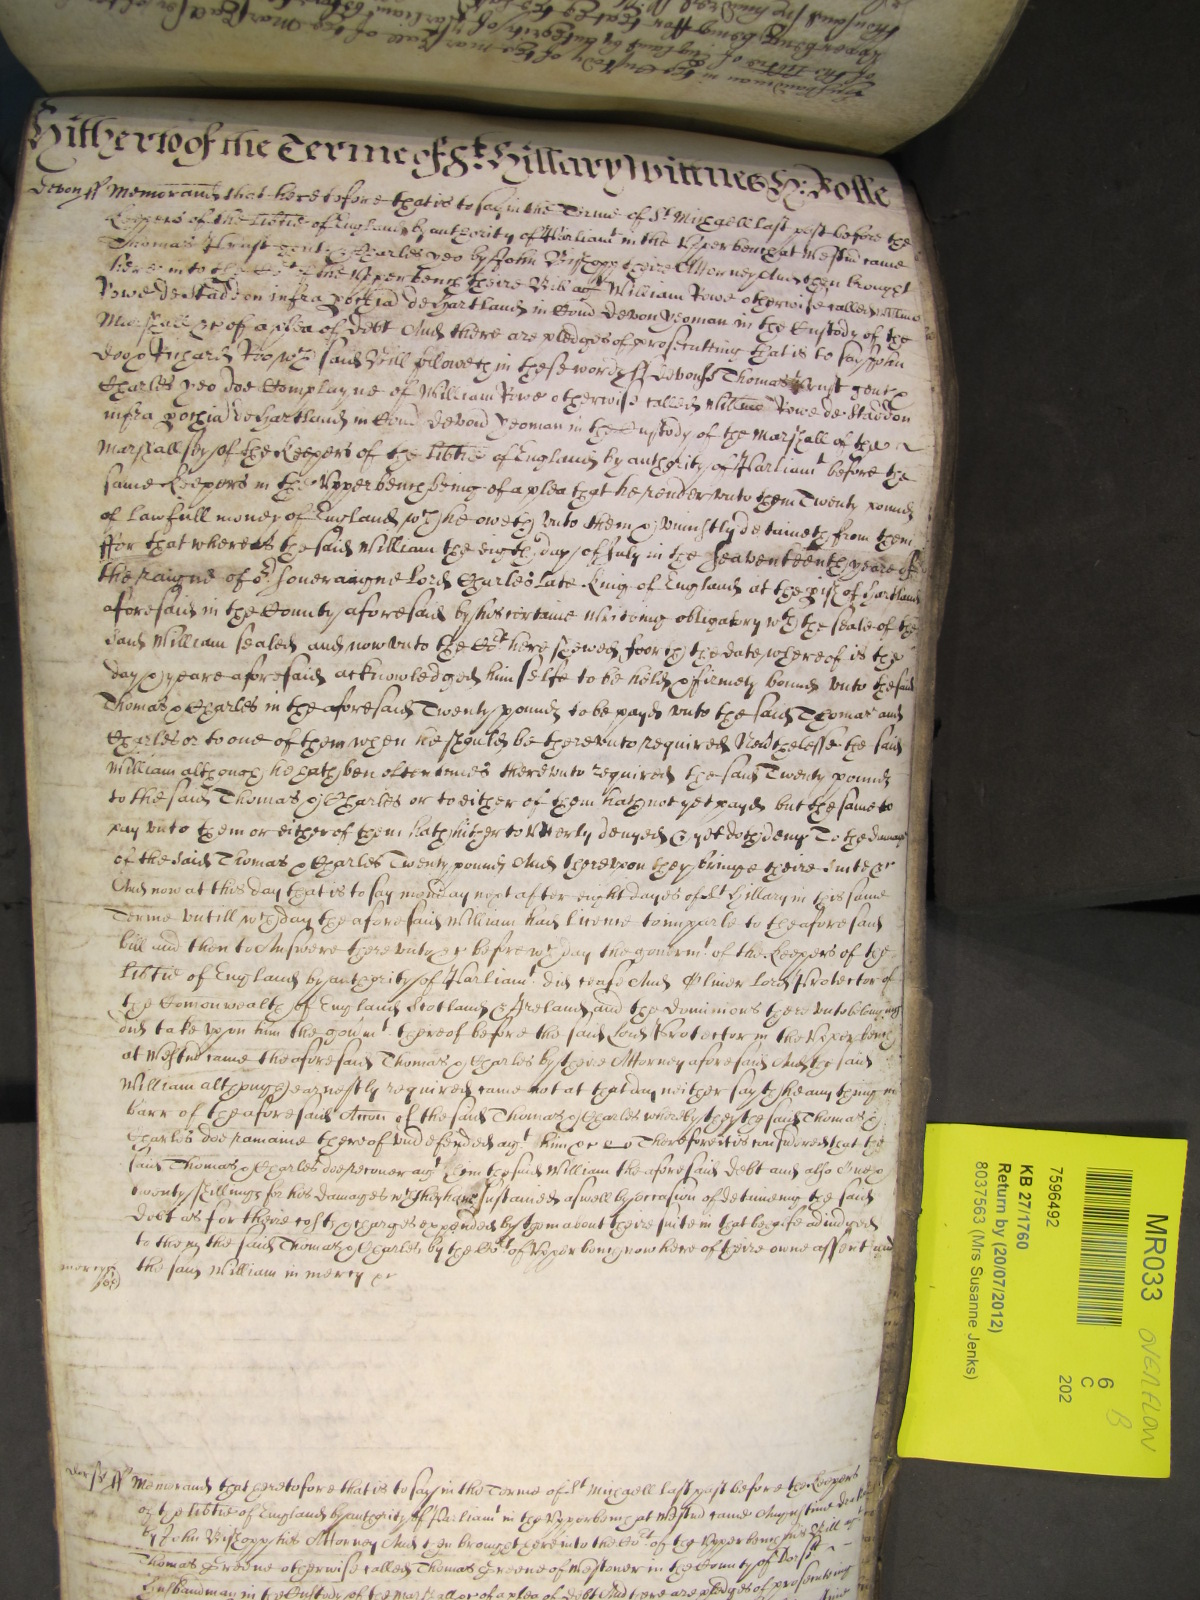 Hitherto of the Terme of St. Hillary Wittnes H: Rolle
Devon ss Memorand that heretofore that is to say in the Terme of St Michaell last past before the
Keepers of the libtie of England by authority of Parliamt in the Upper bench at Westm came
Thomas gent & Charles Yeo by John Bishopp theire Attorney And then brought
here into the Cort of the Upper bench theire Bill agt William Rowe otherwise called Willmo
Rowe de Staddon infra pochia de Hartland in Com Devon yeoman in the Custody of the
Marshall &c of a plea of debt And there are pledges of prosecuting that is to say John
Doo & Richard Roo wch said Bill followeth in these words ss Devon ss Thomas gent &
Charles Yeo doe Complayne of William Rowe otherwise called Willmo Rowe de Staddon
infra pochia de Hartland in Com Devon yeoman in the Custody of the Marshall of the
Marshallsey of the Keepers of the libtie of England by authority of Parliamt before the
same Keepers in the Upper bench being of a plea that he render unto them Twenty pounds
of lawfull money of England wch he oweth unto them & uniustly detaineth from them
ffor that whereas the said William the eight day of July in the seaventeenth yeare of
the raigne of or soveraigne Lord Charles late King of England at the pish of Hartland
aforesaid in the County aforesaid by his certaine Writeing obligatory wth the seale of the
said William sealed and now unto the Cort here shewed foorth the date whereof is the
day & yeare aforesaid acknowledged himselfe to be held & firmely bound unto the said
Thomas & Charles in the aforesaid Twenty pounds to be payd unto the said Thomas and
Charles or to one of them when he should be thereunto required Nevthelesse the said
William although he hath ben oftentimes thereunto required the said Twenty pounds
to the said Thomas & Charles or to either of them hath not yet payd but the same to
pay unto them or either of them hath hitherto utterly denyed & yet doth deny To the damage
of the said Thomas & Charles Twenty pounds And thereupon they bringe theire suite &c
And now at this day that is to say monday next after eight dayes of St Hillary in this same
Terme untill wch day the aforesaid William had licence to imparle to the aforesaid
bill and then to Answere thereunto &c before wch day the governmt of the Keepers of the
libtie of England by authority of Parliamt did cease And Oliver Lord Protector of
the Comonwealth of England Scotland & Ireland and the dominions thereunto belonging
did take uppon him the govmt thereof before the said Lord Protector in the Upper bench
at Westm came the aforesaid Thomas & Charles by theire Attorney aforesaid And the said
William although earnestly required came not at that day neither sayth he any thing in
barr of the aforesaid Accon of the said Thomas & Charles whereby they the said Thomas &
Charles doe remaine thereof undefended agt him &c Therefore it is considered that the
said Thomas & Charles doe recover agt him the said William the aforesaid debt and also
twenty shillings for his damages wch they have sustained aswell by occasion of deteineing the said
debt as for theire costs & charges expended by them about theire suite in that behalfe adiudged
to them the said Thomas & Charles by the Cort of Upper bench now here of theire owne assent and
the said William in mercy &c
mercy
Dorst ss Memorand that heretofore that is to say in the Terme of St Michaell last past before the Keepers
of the libtie of England by authority of Parliamt in the Upper bench at Westm came Augustine
by John Bishopp his Attorney And then brought here into the Cort of the Upper bench his Bill agt
Thomas Greene otherwise called Thomas Greene of in the County of Dorst
husbandman in the Custody of the Marshall &c of a plea of debt And there are pledges of prosecuting
MR033
OVERFLOW
6
C
B
202
7596492
KB 27/1760
Return by (20/07/2012)
8037563 (Mrs Susanne Jenks)